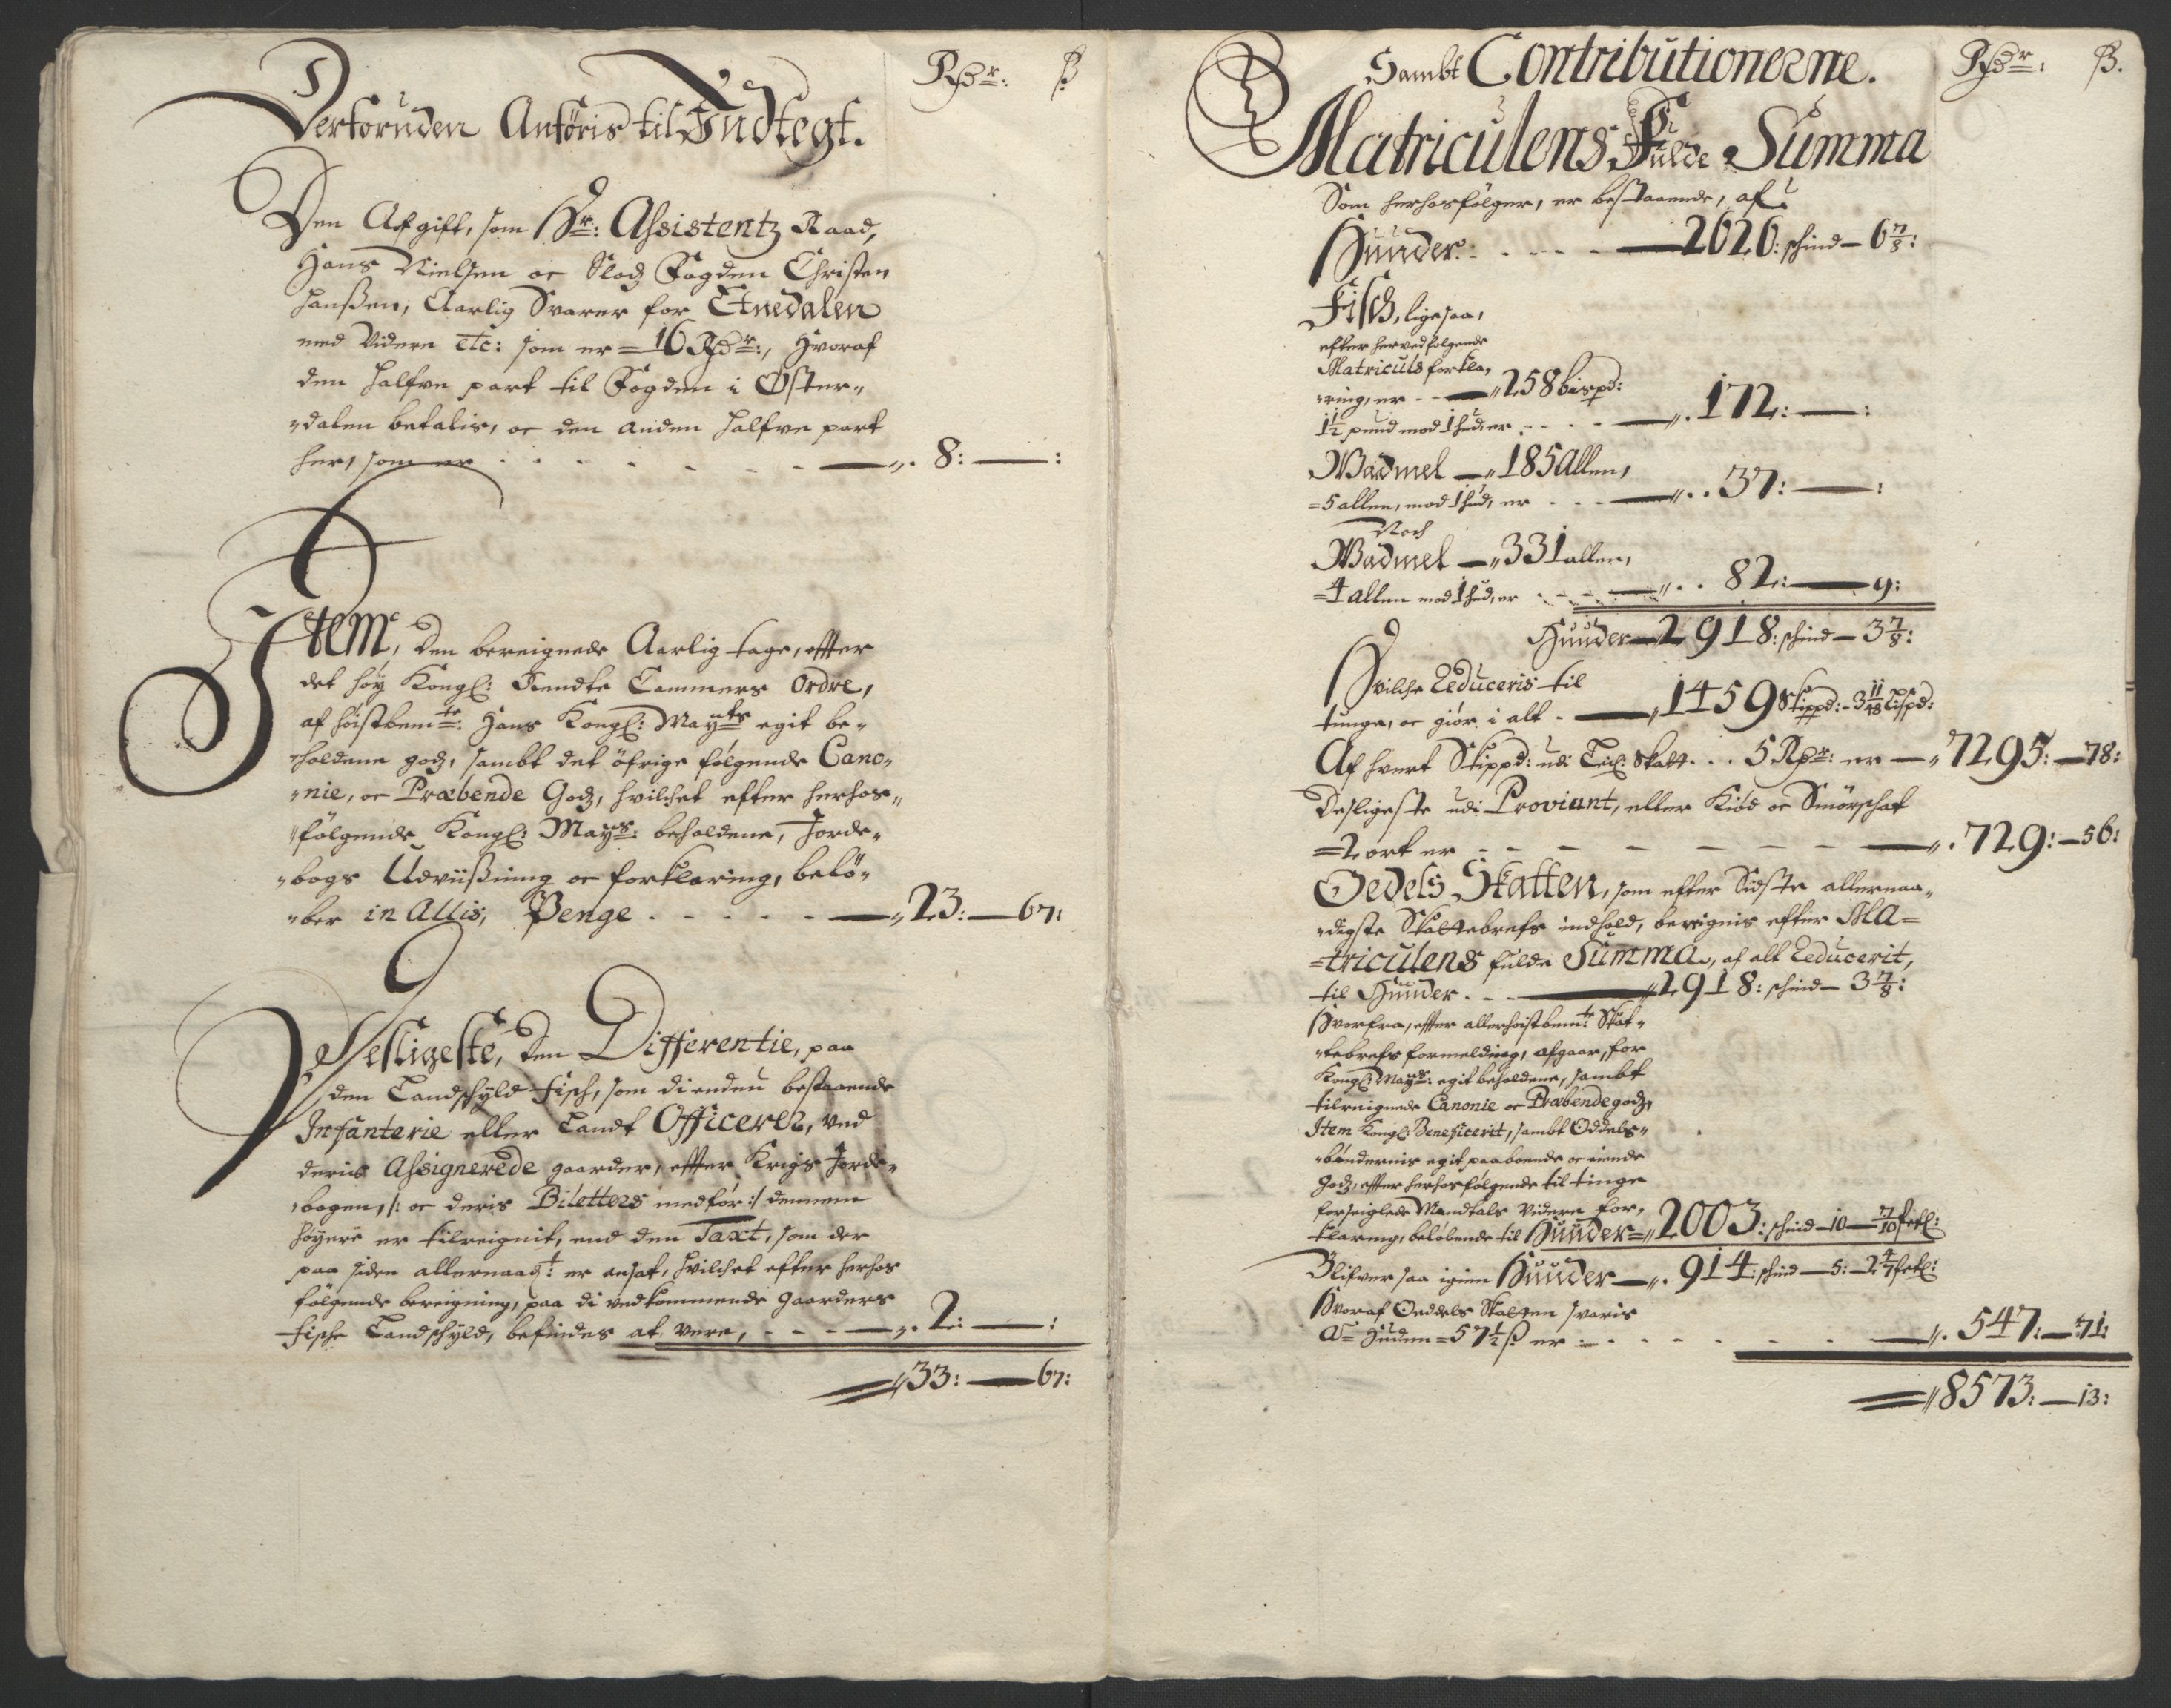 Rdr: ß
Derforuden Anføris til Indtegt.
Den Afgift, som Hr: Assistentz Raad,
Hans Nielsen oc Slodz Fogden Christen
Hanßen, Aarlig Svarer for Etnedalen
med Videre etc: som er = 16 Rdr:, Hvoraf
den halfve part til Fogden i Øster„
„dalen betalis, oc den anden halfve part
her, som er . . . . 8: — :
Item, den bereignede Aarlig tage, effter
det høy Kongl: Rendte Cammers Ordre,
af høistbemte: Hans Kongl: Mayts egit be„
„holdene godz, sambt det öfrige følgende Cano„
„nie, oc Præbende Godz, hvilchet efter herhos„
„følgende Kongl: Mays: beholdene, Jorde„
„bogs Udviißning oc forklaring, belö„
„ber in Allis, Penge . . . . „23: — 67:
Desligeste, den Differentie, paa
den Landschyld fisch, som di endnu bestaaende
Infanterie eller Landt Officerer, ved
deris Assignerede gaarder, effter Krigs Jorde„
„bogen, /: oc deris Biletters medfør :/ dennem
høyere er tilreignit, end den Taxt, som der
paa siden allernaadt: er ansat, hvilchet efter herhos
følgende bereigning, paa di vedkommende gaarders
fische Landschyld, befindes at vere, - - - „. 2: — :
„33: — 67:
Sambt Contributionerne. Rdr: ß.
Matriculens Fulde Summa
Som herhosfølger, er bestaaende, af
Huuder: . . . 2626: schind — 6 7/8:
Fisch, ligesaa,
efter hervedfølgende
Matriculs forkla„
„ring, er - - „258 bispd:
1 1/2 pund mod 1 hud, er . . . „. 172: — :
Wadmel — „185 Allen,
=5 allen, mod 1 hud, er . . . „. . 37: — :
Noch
Wadmel — „331 allen,
=4 allen mod 1 hud, er . . . „. . 82: — 9:
Huuder — 2918: schind — 3 7/8:
Hvilche Reduceris til
tunge, oc giör i alt . — „1459 Skippd: - 3 11/48 Lispd:
Af hvert Skippd: udi Leil: Skatt . . . 5 Rdr: er — „7295: — 78:
Desligeste udi Proviant, eller Kiöd oc Smörschat
=2 ort er - - - - „. 729: — 56:
Oedels Skatten, som efter Sidste allernaa„
„digste Skattebrefs indhold, bereignis efter Ma=
=triculens fulde Summa, af alt Reducerit,
til Huuder . - - „2918: schind — 3 7/8:
Hvorfra, effter allerhøistbemte: Skat„
„tebrefs formelding, afgaar, for
Kongl: Mays: egit beholdene, sambt
tilreignede Canonie oc Præbende godz,
Item Kongl: Beneficerit, sambt Oddels„
„böndernis egit paaboende oc eiende
Godz, effter herhosfølgende til tinge
forseiglede Mandtals Videre for„
klaring, beløbende til Huuder = „2003: schind — 10 — 7/10 fetl:
Blifver saa igien Huuder — „. 914: schind — 5: — 2 4/7 fetl:
Hvoraf Oeddels Skatten svaris
A= Huden = 57 1/2 ß er . . . „. 547: — 71:
„8573: — 13: